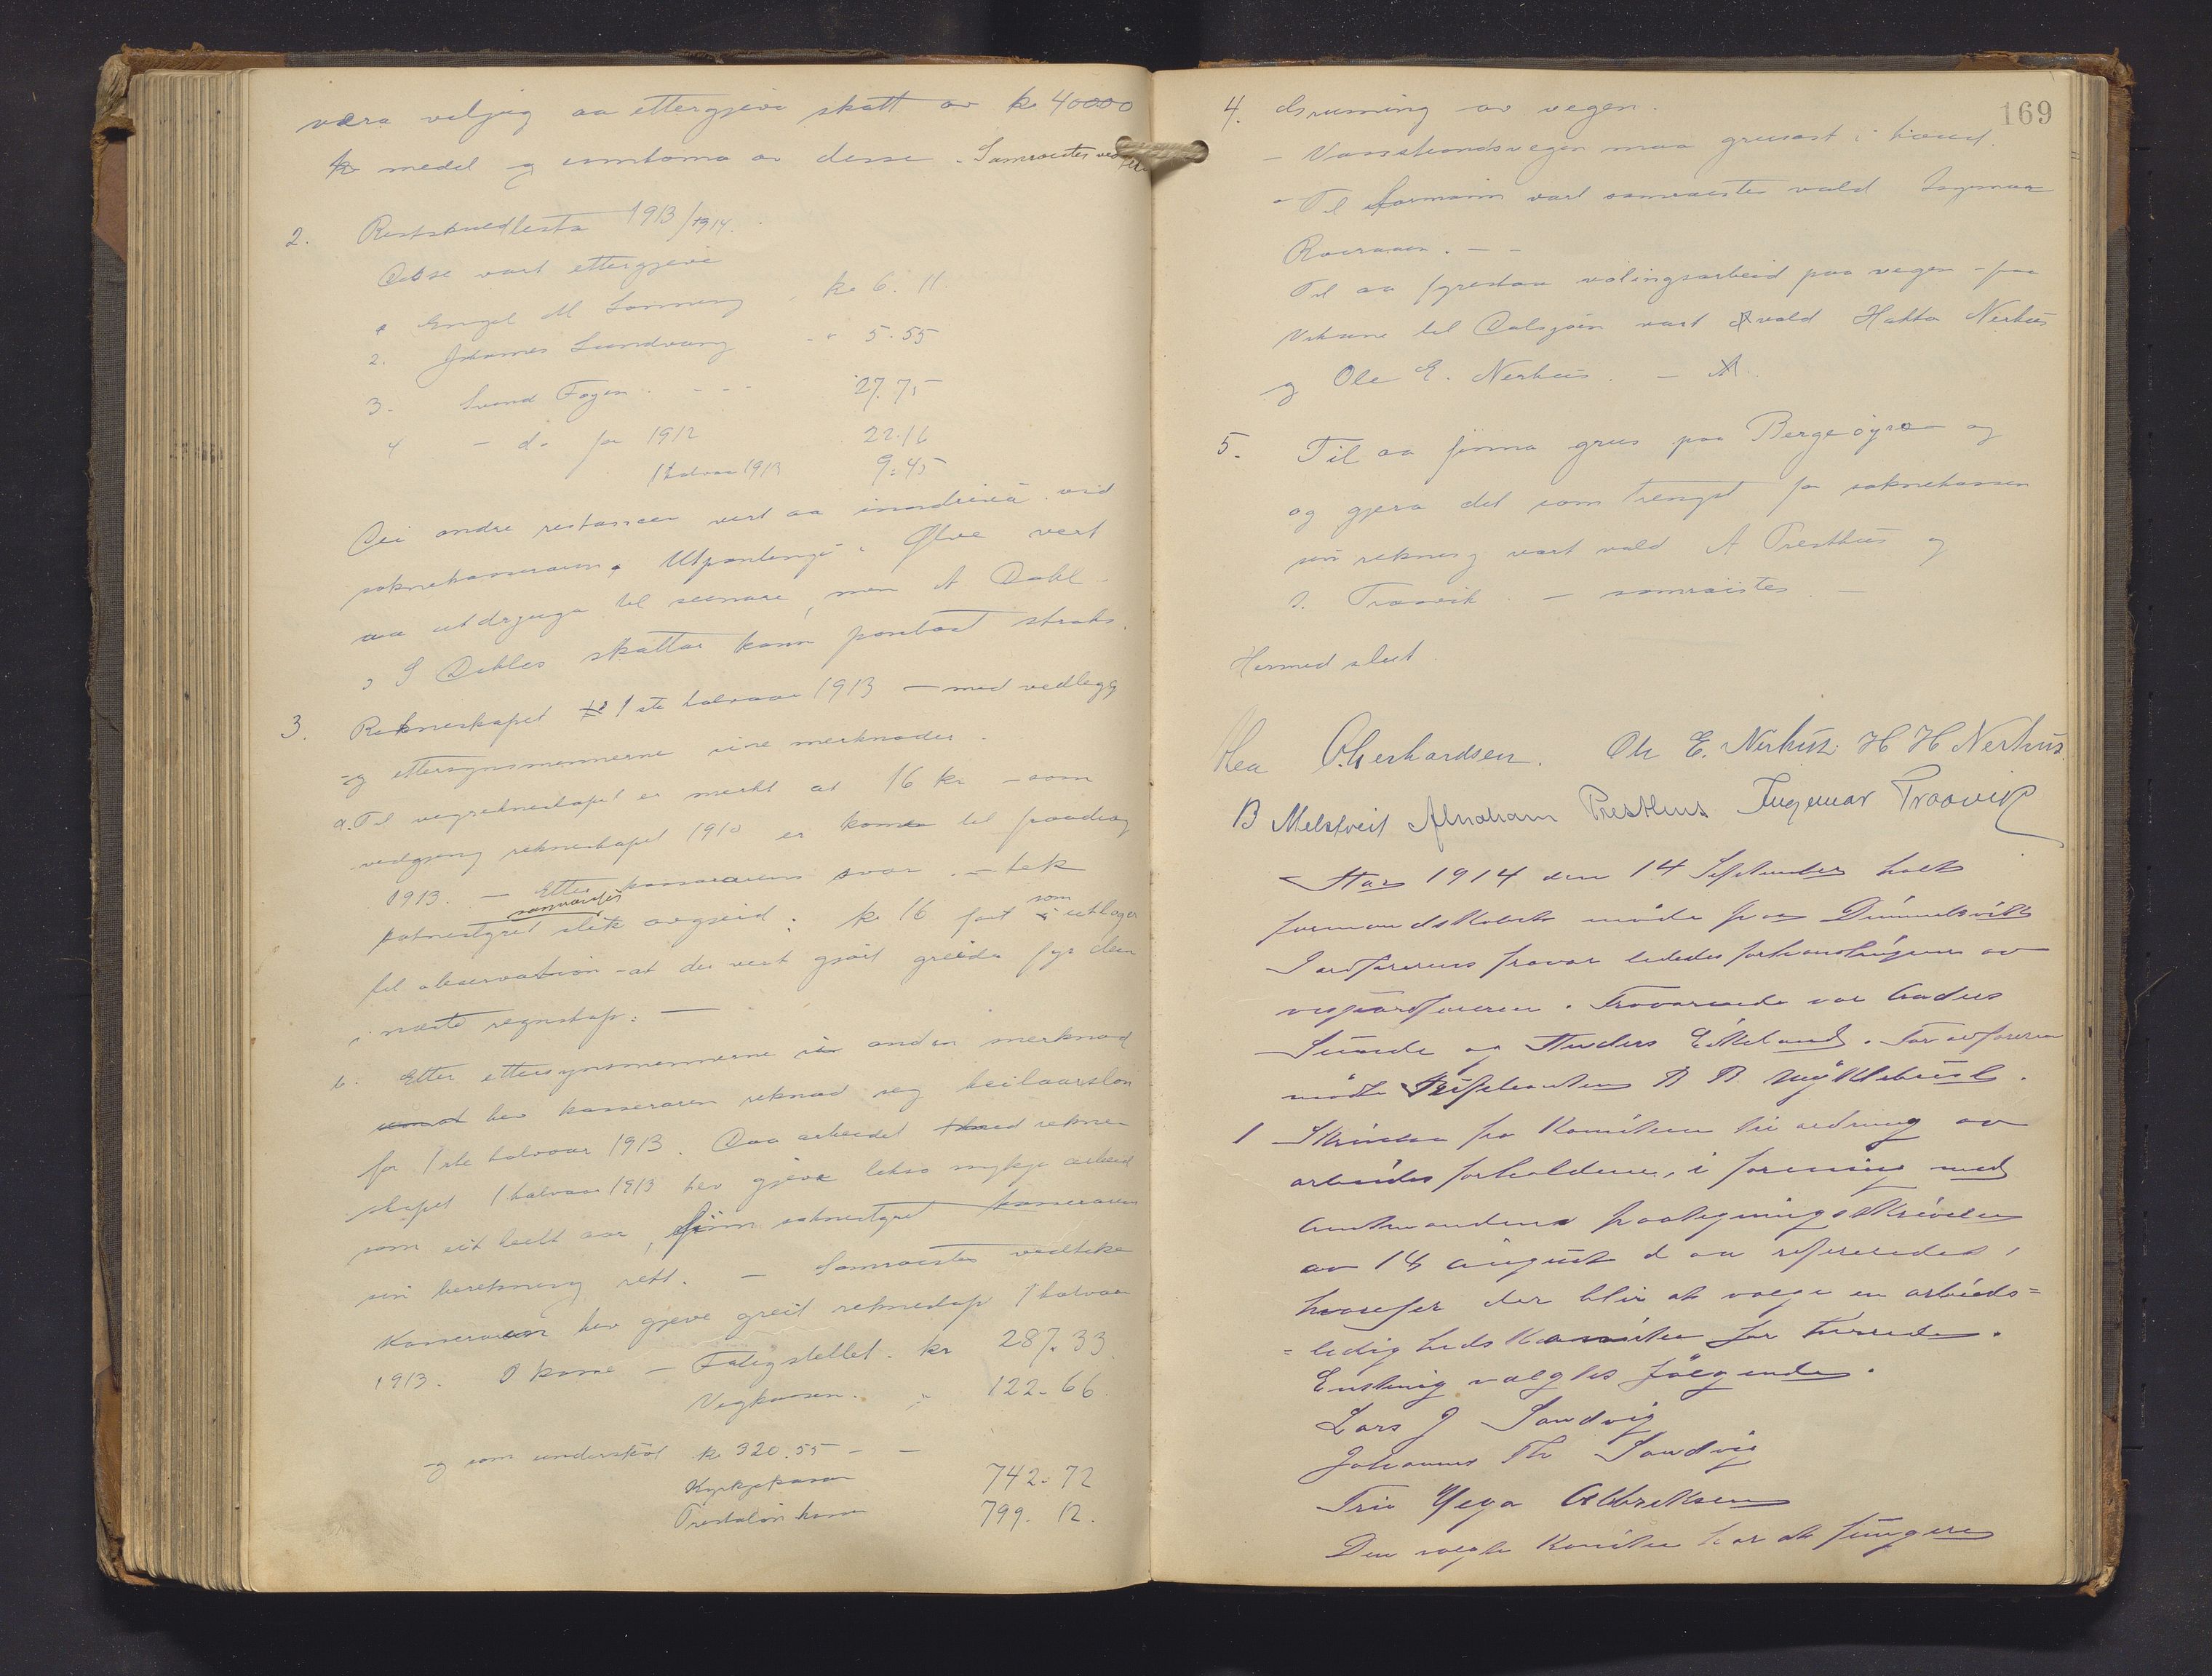 vera viljug aa ettergjeva skatt av kr 40000
kr medel og inntoma av desse - Samrøistes vedteke
2. Restskuedlista 1913/1914.
Desse vart ettergjevi
1 Engel M Lønning . kr 6. 11.
2. Johannes Sundvang - " 5.55
3. Svend Fagen . - - - 27.75
4 - do for 1912 22.16
1 halvaar 1913 9.45
Dei andre restansar vert aa inndriva vid
soknekasseraren. Utpantingi Ølve vert
aa utdryga til seenare, men A Dahl -
I Dahles skattar kann pantast straks.
3. Rekneskapet 1ste halvaar 1913 - med vedlegg
og ettersynsmennerne sine merknader.
a. Til vegrekneskapet er merkt at 16 kr - som
vedgjeng rekneskapet 1910 er komen til paadrag
1913. - Etter kasserarens svar . - tek
samrøistes
soknestyret slik avgjerd: kr 16 ført som utlagt
til observation - at der vert gjort greida fyr den
i næste regnskap. -
b. Etter ettersynsmennerne si andre merknad
hev kasseraren reknad seg heilaarsløn
for 1ste halvaar 1913. Daa arbeidet med rekne-
skapet 1 halvaar 1913 hev gjeve likso mykje arbeid
som eit heilt aar, finn soknestyret kasserarens
sin berekning rett. - Samrøistes vedteke
Kasseraren hev gjeve greit rekneskap 1 halvaar
1913. I kasse - Fatigstellet. kr 287.33
Vegkassen. " 122.66
og som underskot kr 320.55 - -
Kyrkjekassen 742.72
Prestaløn kassen 799.12.
169
4. Grusning av vegen.
- Vannstrandsvegen maa grusast i haust.
- Til formann vart samrøistes vald Ingemar
Raaen . - -
Til aa fyrestaa vølingsarbeid paa vegen - fra
Vikane til Dalsjøen vart vald Hakto Nerhus
og Ole E. Nerhus. -
5. Til aa finna grus paa Bergeøyra og
og gjera det som trengst for soknekassen
sin rekning vart vald A Presthus og
I. Traavik. - samrøistes. -
Hermed slut.
Chr Gerhardsen. Ole E. Nerhus. H H Nerhus.
B Melstveit Abraham Presthus Ingemar Traavik
Aar 1914 den 14 September holt
formandskabet møde paa Dimmelsvik
I ordførerens fravær lededes forhandlingene av
viseordføreren. Fraværende var Anders
Sunde og Anders Eikeland. For ordføreren
mødte suppleanten B. B. Myklebust.
1 Skrivelse fra Komiteen til ordning av
arbeidsforholdene, i forening med
Amtmandens paategningsskrivelse
av 14 august d aa refereredes,
hvorefter der blir at vælge en arbeids=
=ledighedskomite for herredet.
Enstemig valgtes følgende.
Lars J Sandvig
Johannes Th Sandvig
Den valgte Komite har at fungere